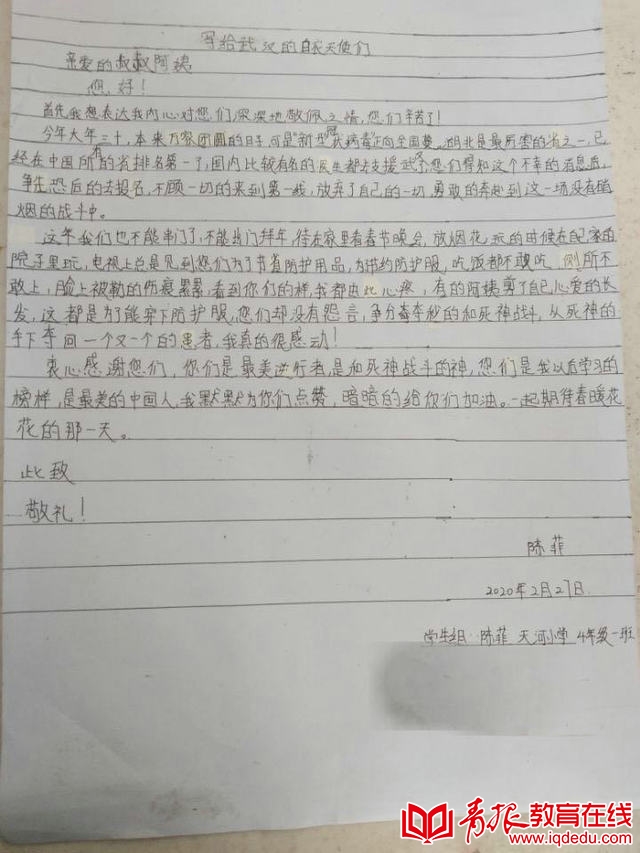 写给武汉的白衣天使们
亲爱的叔叔阿姨
您好！
首先我想表达我内心对您们深深地敬佩之情，您们辛苦了！
今年大年三十，本来万家团圆的日子，可是"新型冠状病毒"正向全国蔓，湖北是最厉害的省之一，已
经在中国所有的省排名第一了，国内比较有名的医生都去支援武汉了，您们得知这个不幸的消息后，
争先恐后的去报名，不顾一切的来到第一线，放弃了自己的一切，勇敢的奔赴到这一场没有硝
烟的战斗中。
这年我们也不能串门了，不能出门拜年，待在家里看春节晚会，放烟花玩的时候在自己家的
院子里玩，电视上总是见到您们为了节省防护用品，为节约防护服，吃饭都不顾吃，厕所不
敢上，脸上被勒的伤痕累累，看到你们的样，我都由此心疼，有的阿姨剪了自己心爱的长
发，这都是为了能穿下防护服，您们却没有怨言，争分夺秒的和死神战斗，从死神的
手下夺回一个又一个的患者，我真的很感动！
衷心感谢您们，你们是最美逆行者，是和死神战斗的神，您们是我以后学习的
榜样，是最美的中国人，我默默为你们点赞，暗暗的给你们加油。一起期待春暖花
花的那一天。
此致
敬礼！
陈菲
2020年2月27日
学生组：陈菲 天河小学 4年级一班
青报教育在线
www.iqdedu.com